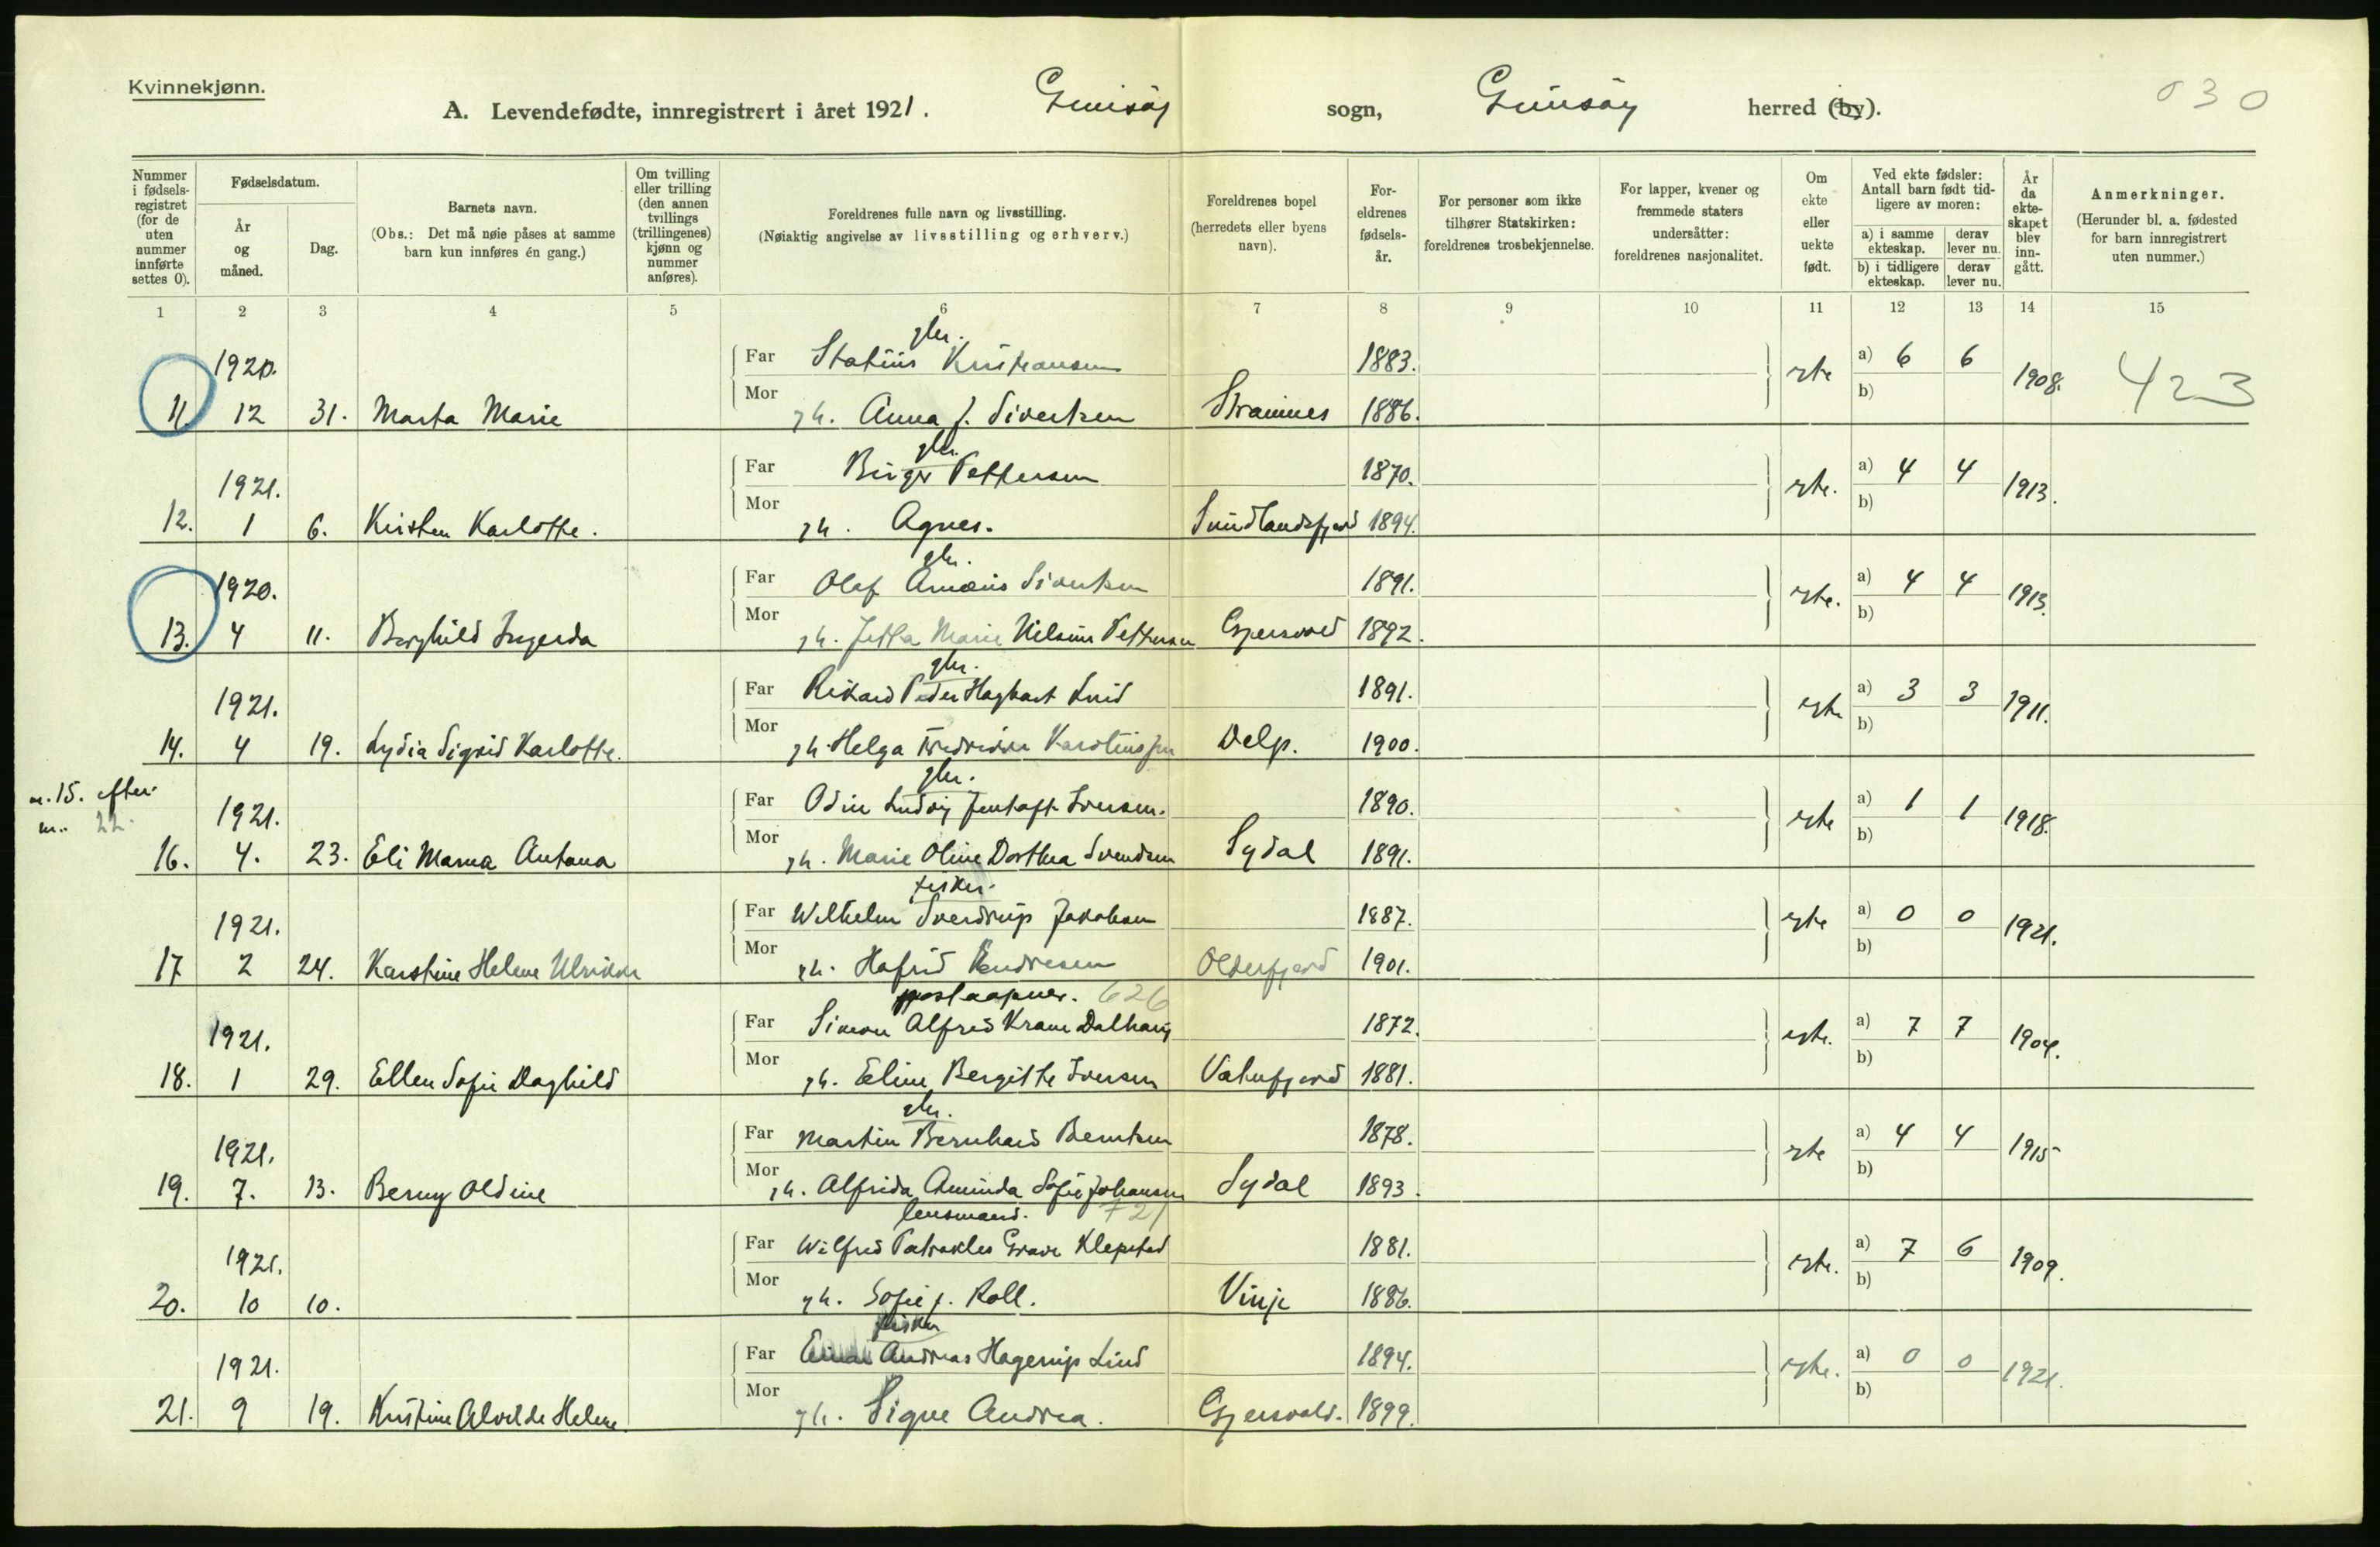 Kvinnekjønn.
A. Levendefødte, innregistrert i året 1921. Gimsøy sogn, Gimsøy herred (by). 030
Nummer i fødsels-registret (for de uten nummer innførte settes 0).
Fødselsdatum.
År og måned.
Dag.
Barnets navn. (Obs.: Det må nøie påses at samme barn kun innføres én gang.)
Om tvilling eller trilling (den annen tvillings (trillingenes) kjønn og nummer anføres).
Foreldrenes fulle navn og livsstilling. (Nøiaktig angivelse av livsstilling og erhverv.)
Foreldrenes bopel (herredets eller byens navn).
For-eldrenes fødsels-år.
For personer som ikke tilhører Statskirken: foreldrenes trosbekjennelse.
For lapper, kvener og fremmede staters undersåtter: foreldrenes nasjonalitet.
Om ekte eller uekte født.
Ved ekte fødsler: Antall barn født tid-ligere av moren:
a) i samme ekteskap. derav lever nu.
b) i tidligere ekteskap. derav lever nu.
År da ekte-skapet blev inn-gått.
Anmerkninger. (Herunder bl. a. fødested for barn innregistrert uten nummer.)
1 2 3 4 5 6 7 8 9 10 11 12 13 14 15
gbr.
1920. Far Statius Kristiansen 1883. a) 6 6
11. 12 31. Marta Marie Mor gh. Anna f. Sivertsen Stramnes 1886. ekte b) 1908. 423
gbr.
1921. Far Birger Pettersen 1870. a) 4 4
12. 1 6. Kirsten Karlotte. Mor gh. Agnes. Sundlandsfjord 1894. ekte. b) 1913.
gbr.
1920. Far Olaf Amæus Sivertsen 1891. a) 4 4
13. 4 11. Berghild Ingerda Mor gh. Jetta Marie Nilsine Pettersen Gjersvold 1892. ekte. b) 1913.
gbr.
1921. Far Rikard Peder Hagbart Lind 1891. a) 3 3
14. 4 19. Lydia Sigrid Karlotte. Mor gh. Helga Fredrikke Delp. 1900. ekte b) 1911.
n. 15. efter
nr. 22.
gbr.
1921. Far Odin Ludvig Jentoft Iversen. 1890. a) 1 1
16. 4. 23. Eli Marna Antona Mor gh. Marie Oline Dorthea Svendsen Sydal 1891. ekte b) 1918.
fisker.
1921. Far Wilhelm Sverdrup Jakobsen 1887. a) 0 0
17 2 24. Karstine Helene Ulrikke Mor gh. Hafrid Endresen Olderfjord 1901. ekte b) 1921.
postaapner. 626
1921. Far Simon Alfred Krane Dalhaug 1872. a) 7 7
18. 1 29. Ellen Sofie Daghild Mor gh. Eline Bergitte Iversen Vaterfjord 1881. ekte. b) 1904.
gbr.
1921. Far Martin Bernhard Berntsen 1878. a) 4 4
19. 7. 13. Berny Oldine Mor gh. Alfrida Aminda Sofie Johansen Sydal 1893. ekte b) 1915
lensmand. 721
1921. Far Wilfred Patrokles Grave Klepstad 1881. a) 7 6
20. 10 10. Mor gh. Sofie f. Roll. Vinje 1886. ekte. b) 1909.
fisker
1921. Far Einar Andreas Hagerup Lind 1894. a) 0 0
21. 9 19. Kristine Alvilde Helene. Mor gh. Signe Andrea. Gjersvold. 1899. ekte. b) 1921.